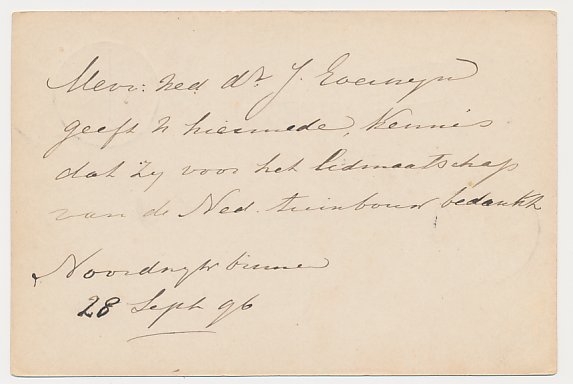 Mevr: Wed. dr. J.
geeft U hiermede, kennis
dat zij voor het lidmaatschap
van de Ned. tuinbouw bedankt
Noordwijk binnen
28 Sept 96